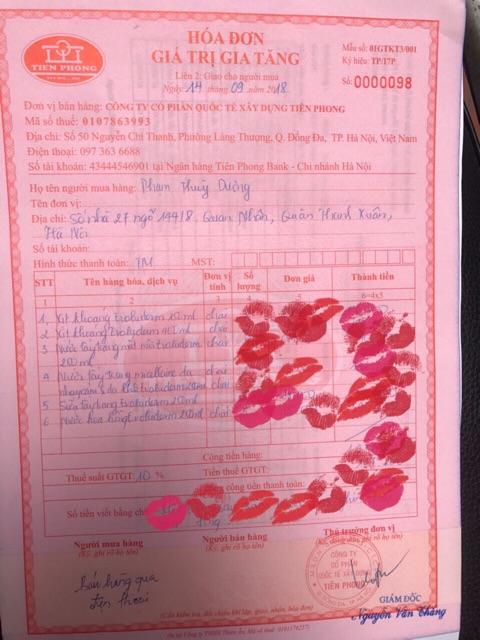 TIEN PHONG
HÓA ĐƠN
GIÁ TRỊ GIA TĂNG
Liên 2: Giao cho người mua
Ngày 14 tháng 09 năm 2018
Mẫu số: 01GTKT3/001
Ký hiệu: TP/17P
Số: 0000098
Đơn vị bán hàng: CÔNG TY CỔ PHẦN QUỐC TẾ XÂY DỰNG TIÊN PHONG
Mã số thuế: 0107863993
Địa chỉ: Số 50 Nguyễn Chí Thanh, Phường Láng Thượng, Q. Đống Đa, TP. Hà Nội, Việt Nam
Điện thoại: 097 363 6688
Số tài khoản: 43444546901 tại Ngân hàng Tiên Phong Bank - Chi nhánh Hà Nội
Họ tên người mua hàng: Phạm Thùy Dương
Tên đơn vị:
Địa chỉ: Số nhà 27 ngõ 144/8, Quan Nhân, Quận Thanh Xuân,
Hà Nội
Số tài khoản:
Hình thức thanh toán: TM MST:
STT Tên hàng hóa, dịch vụ Đơn vị tính Số lượng Đơn giá Thành tiền
1 2 3 4 5 6=4x5
1. Xịt khoáng Evoluderm 150ml chai
2 Xịt khoáng Evoluderm 400ml
3 Nước tẩy trang mắt môi Evoluderm chai
4 Nước tẩy trang micellaire da chai
nhạy cảm & da khô Evoluderm chai
5 Sữa tẩy trang Evoluderm 250ml
6 Nước hoa hồng Evoluderm chai
Cộng tiền hàng:
Thuế suất GTGT: 10 % Tiền thuế GTGT:
cộng tiền thanh toán:
Số tiền viết bằng
đồng
Người mua hàng Người bán hàng Thủ trưởng đơn vị
(Ký, ghi rõ họ tên) (Ký, ghi rõ họ tên)
CÔNG TY
CỔ PHẦN
QUỐC TẾ XÂY DỰNG
TIÊN PHONG
Bán hàng qua
điện thoại
GIÁM ĐỐC
Nguyễn Văn Thắng
(Cần kiểm tra, đối chiếu khi lập, giao, nhận hóa đơn)